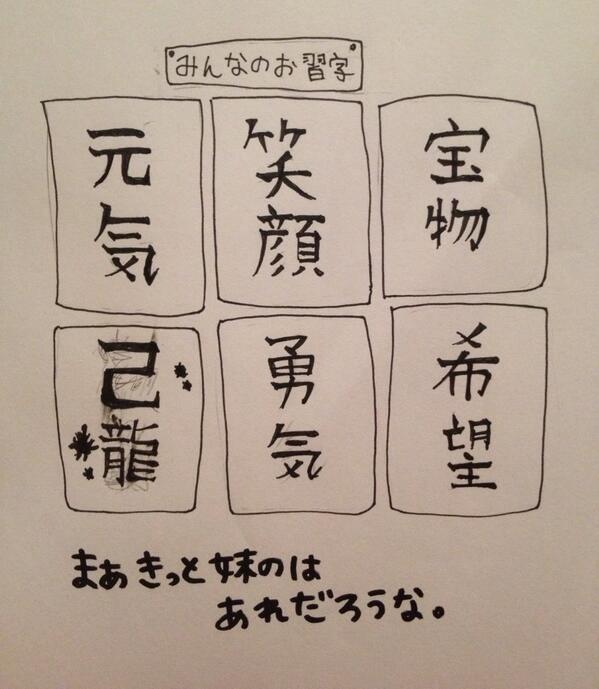 みんなのお習字
宝物
笑顔
元気
希望
勇気
己龍
まぁきっと妹のは
あれだろうな。